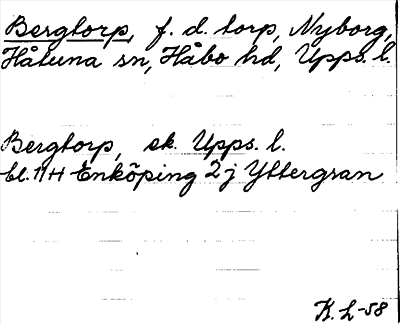 Bergtorp, f. d. torp, Nyborg,
Håtuna sn, Håbo hd, Upps. l.
Bergtorp, ek. Upps. l.
bl. 11 H Enköping 2 j Yttergran
K. L-58